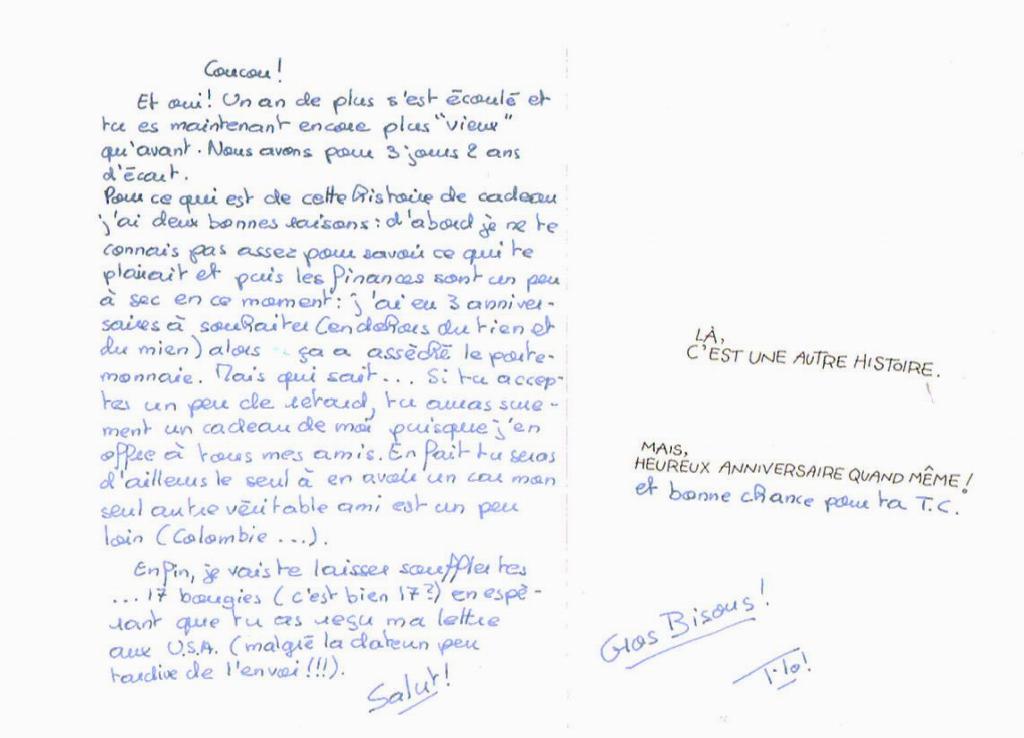 Coucou!
Et oui! Un an de plus s'est écoulé et
tu es maintenant encore plus "vieux"
qu'avant. Nous avons pour 3 jours 2 ans
d'écart.
Pour ce qui est de cette histoire de cadeau
j'ai deux bonnes raisons: d'abord je ne te
connais pas assez pour savoir ce qui te
plairait et puis les finances sont un peu
à sec en ce moment: j'ai eu 3 anniver-
saires à souhaiter (en dehors du tien et
du mien) alors ça a asséché le porte-
monnaie. Mais qui sait... Si tu accep-
tes un peu de retard, tu auras sure-
ment un cadeau de moi puisque j'en
offre à tous mes amis. En fait tu seras
d'ailleurs le seul à en avoir un car mon
seul autre véritable ami est un peu
loin (Colombie ...).
Enfin, je vais te laisser souffler tes
... 17 bougies (c'est bien 17?) en espé-
rant que tu as reçu ma lettre
aux U.S.A. (malgré la date un peu
tardive de l'envoi!!!).
Salut!
LÀ,
C'EST UNE AUTRE HISTOIRE.
MAIS,
HEUREUX ANNIVERSAIRE QUAND MÊME!
et bonne chance pour ta T.C.
Gros Bisous!